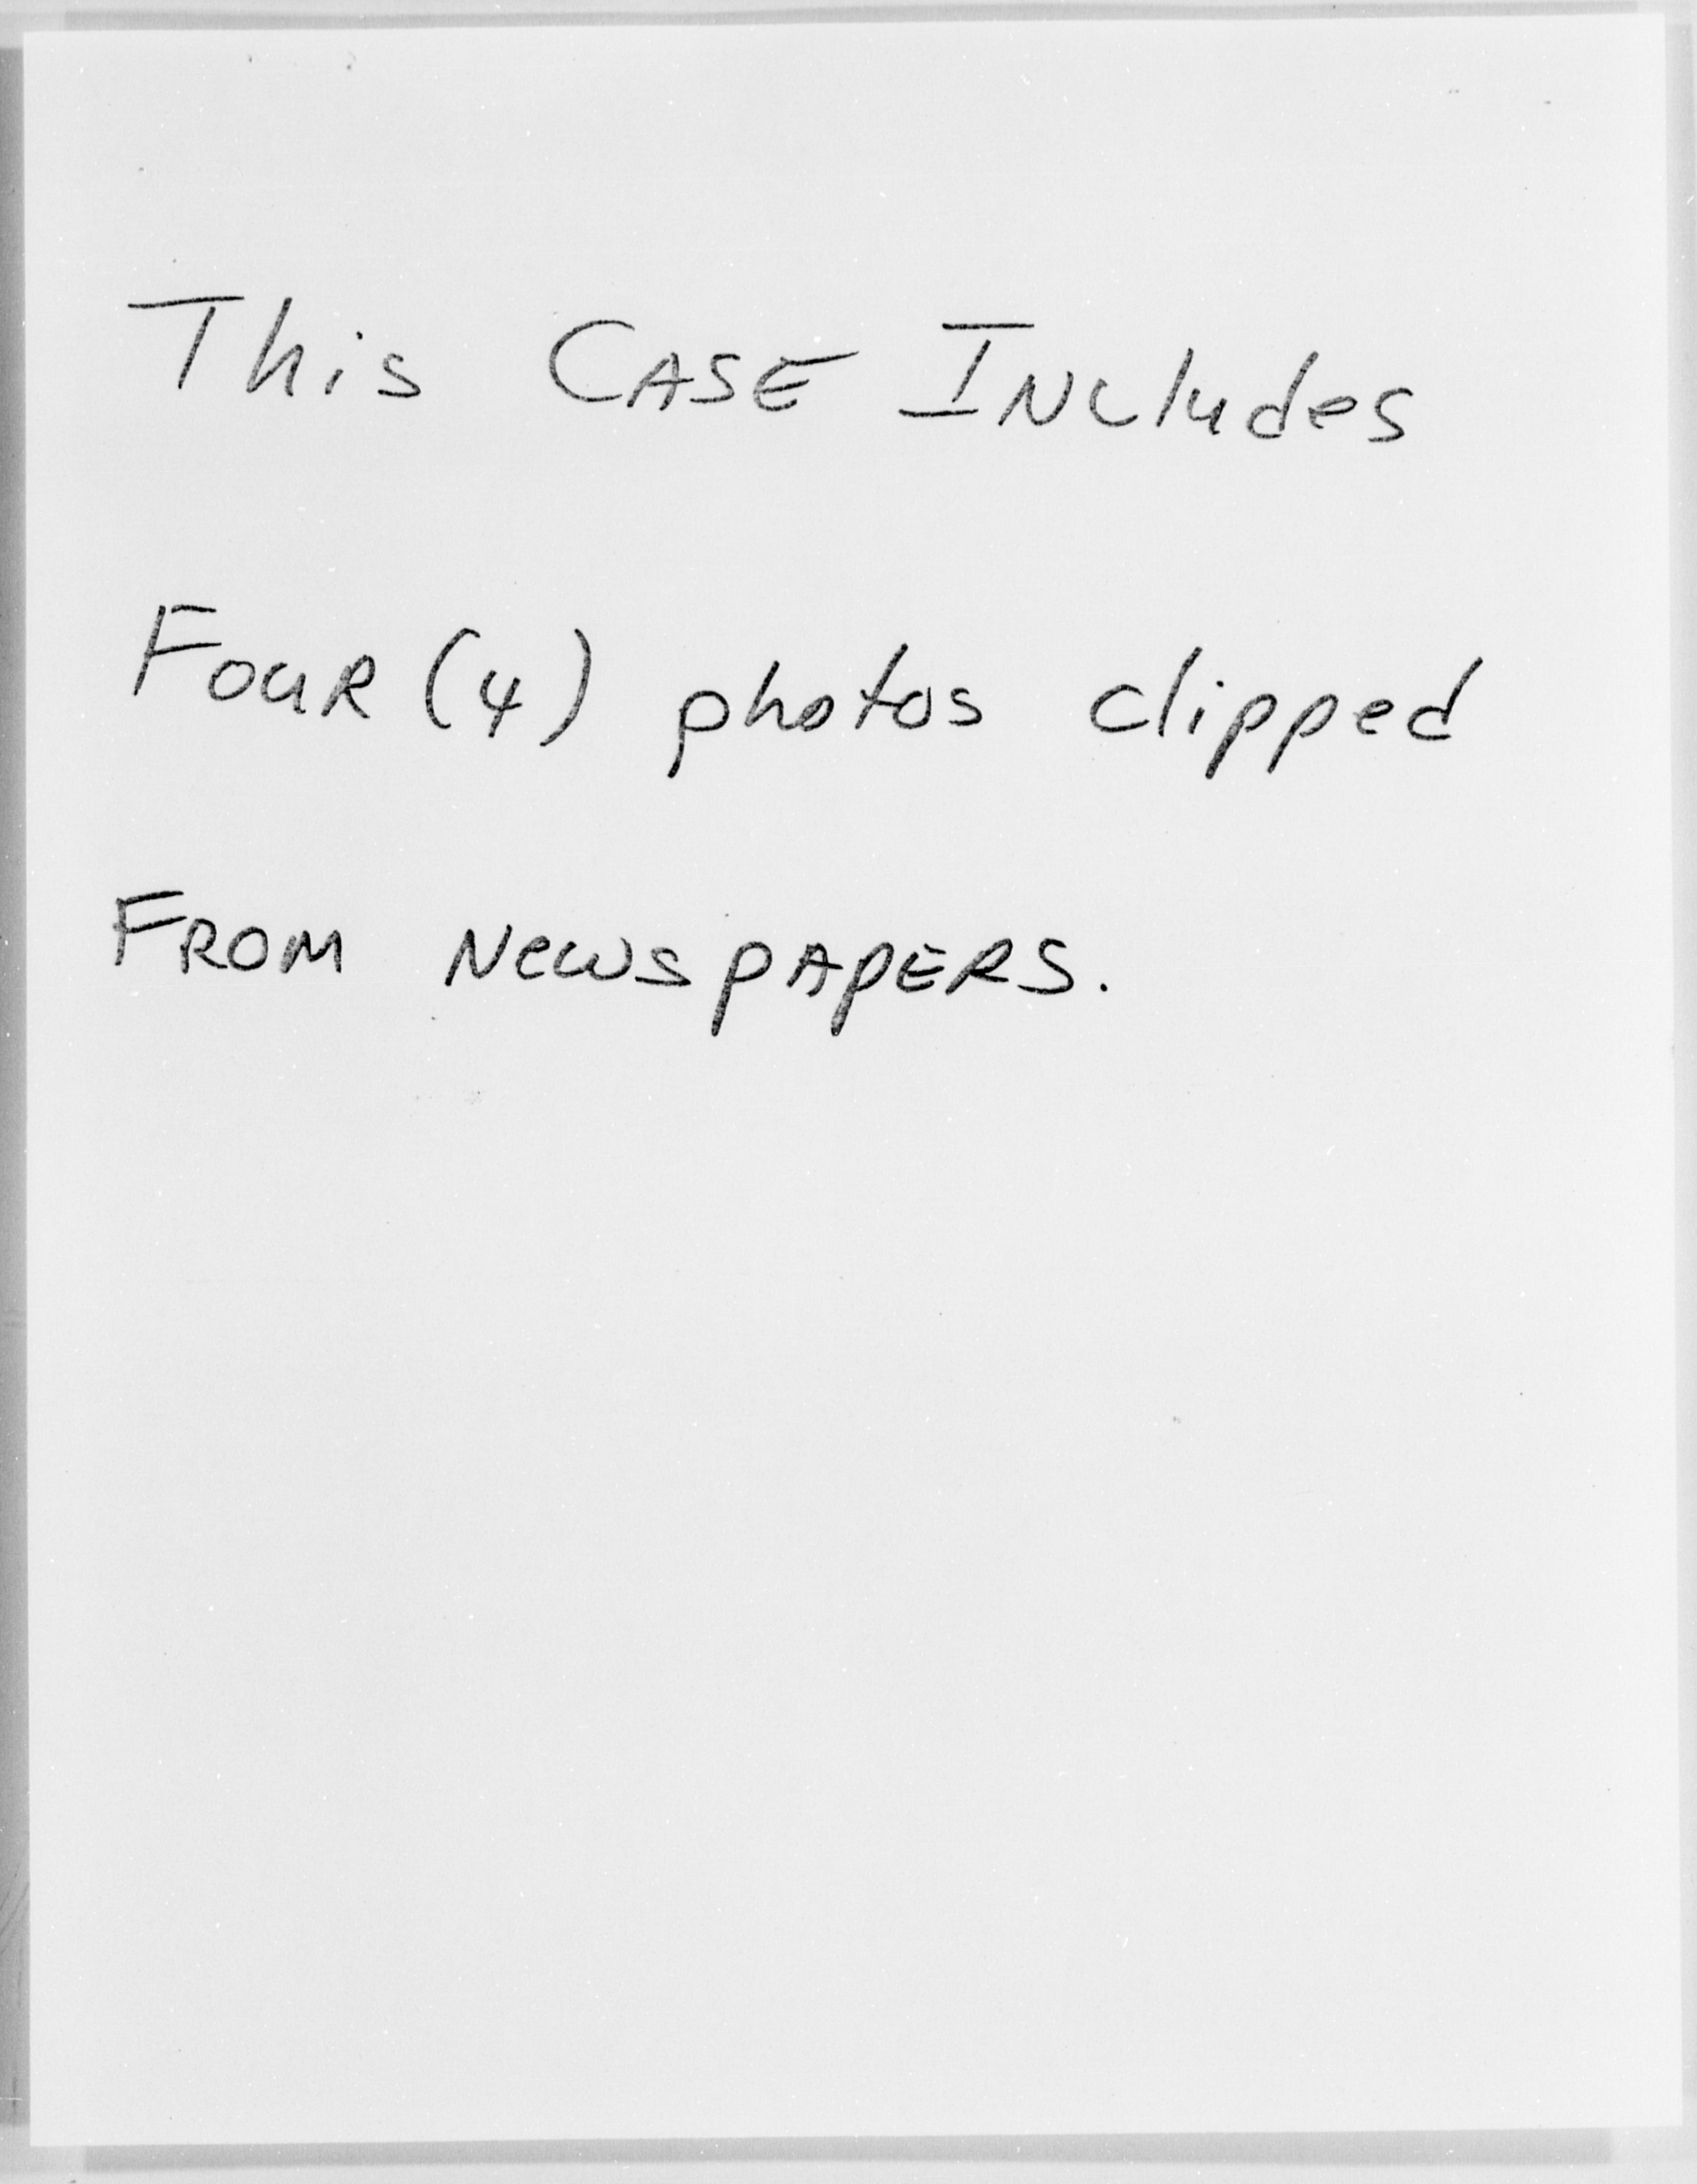 This CASE INcludes
FouR (4) photos clipped
FROM NewspAPERS.